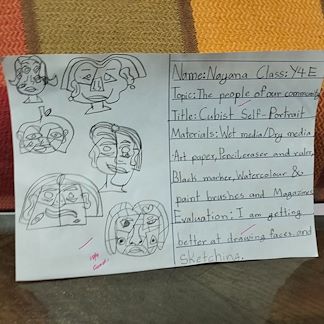 Name: Nayana Class: Y4E
Topic: The people of our community
Title: Cubist Self-Portrait
Materials: Wet media/Dry media
Art paper, Pencil, eraser and ruler,
Black marker, Watercolour &
paint brushes and Magazines
Evaluation: I am getting
better at drawing faces and
sketching.
Good.